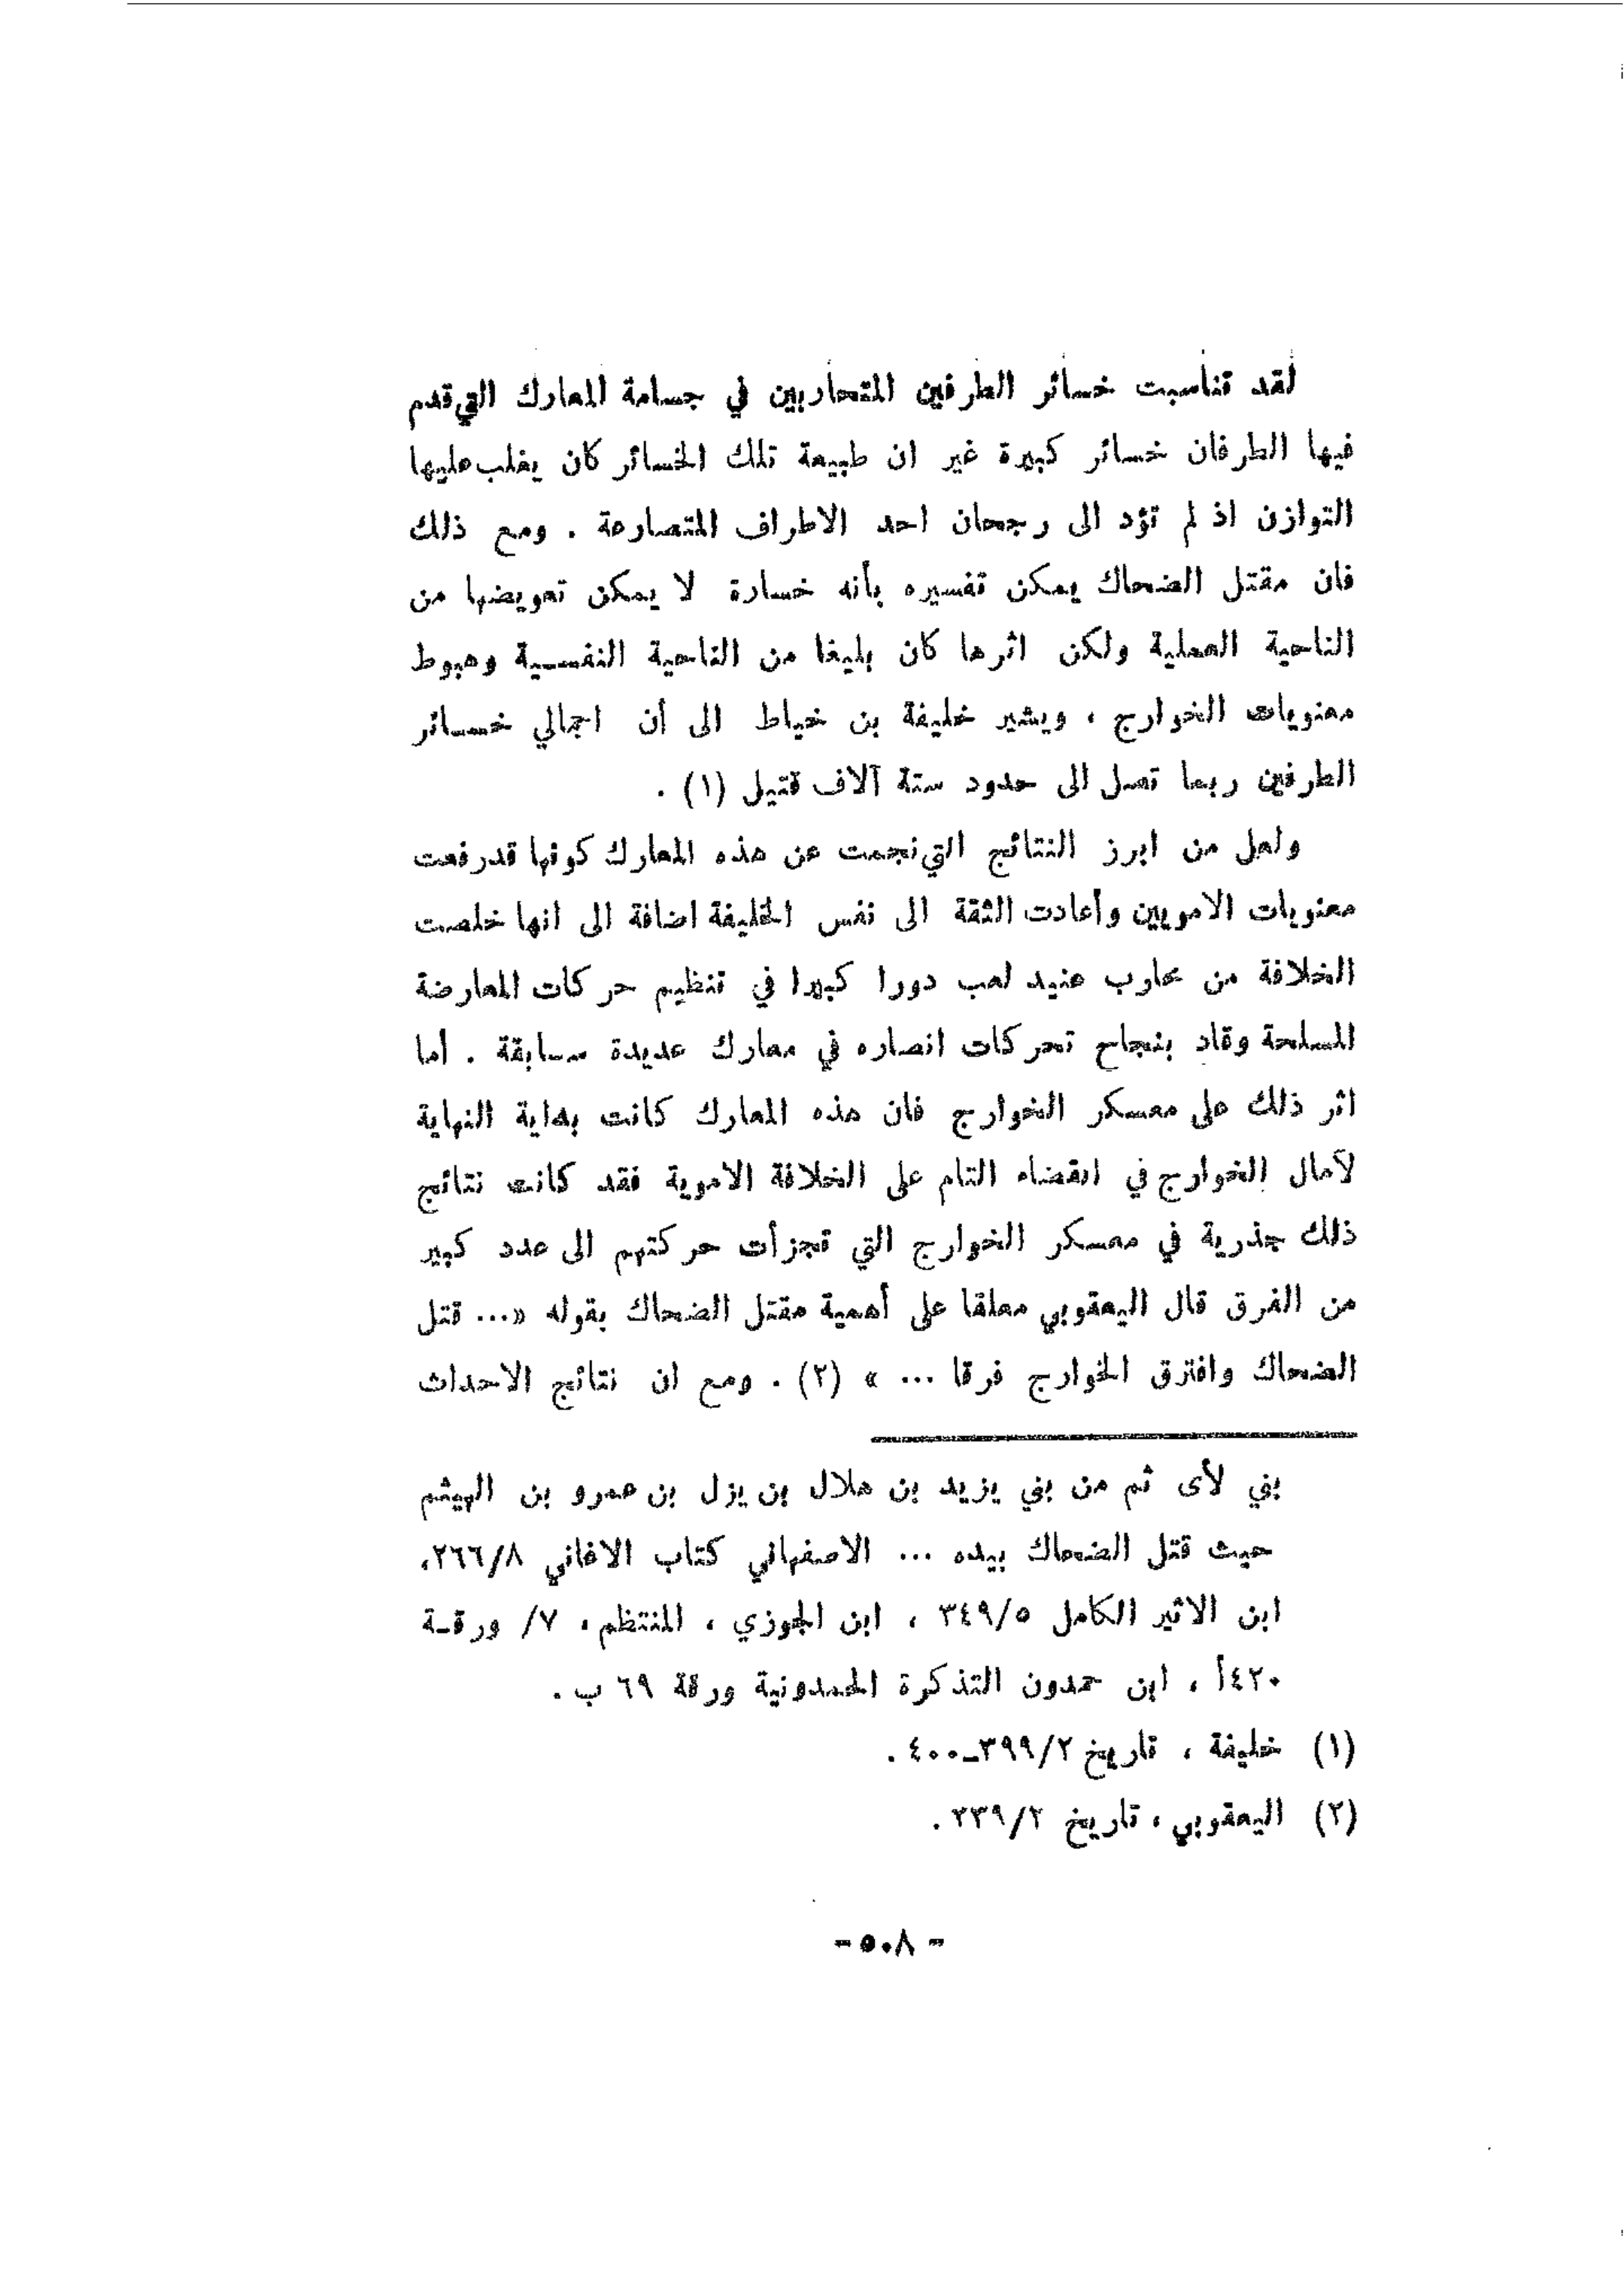 لقد تناسبت خسائر الطرفين المتحاربين في جسامة المعارك التي قدم
فيها الطرفان خسائر كبيرة غير ان طبيعة تلك الخسائر كان يغلب عليها
التوازن اذ لم تؤد الى رجحان احد الاطراف المتصارعة . ومع ذلك
فان مقتل الضحاك يمكن تفسيره بأنه خسارة لا يمكن تعويضها من
الناحية العملية ولكن اثرها كان بليغا من الناحية النفسية وهبوط
معنويات الخوارج ، ويشير خليفة بن خياط الى أن اجمالي خسائر
الطرفين ربما تصل الى حدود ستة آلاف قتيل (١) .
ولعل من ابرز النتائج التي نجمت عن هذه المعارك كونها قد رفعت
معنويات الامويين وأعادت الثقة الى نفس الخليفة اضافة الى انها خلصت
الخلافة من محارب عنيد لعب دورا كبيرا في تنظيم حركات المعارضة
المسلحة وقاد بنجاح تحركات انصاره في معارك عديدة سابقة . أما
اثر ذلك على معسكر الخوارج فان هذه المعارك كانت بداية النهاية
لآمال الخوارج في القضاء التام على الخلافة الاموية فقد كانت نتائج
ذلك جذرية في معسكر الخوارج التي تجزأت حركتهم الى عدد كبير
من الفرق قال اليعقوبي معلقا على أهمية مقتل الضحاك بقوله «... قتل
الضحاك وافترق الخوارج فرقا ... » (٢) . ومع ان نتائج الاحداث
بني لأى ثم من بني يزيد بن هلال بن يزل بن عمرو بن الهيثم
حيث قتل الضحاك بيده ... الاصفهاني كتاب الاغاني ٢٦٦/٨،
ابن الاثير الكامل ٣٤٩/٥ ، ابن الجوزي ، المنتظم ، ٧/ ورقة
٤٢٠أ ، ابن حمدون التذكرة الحمدونية ورقة ٦٩ ب .
(١) خليفة ، تاريخ ٣٩٩/٢ــ٤٠٠ .
(٢) اليعقوبي ، تاريخ ٢٣٩/٢ .
- ٥٠٨ -